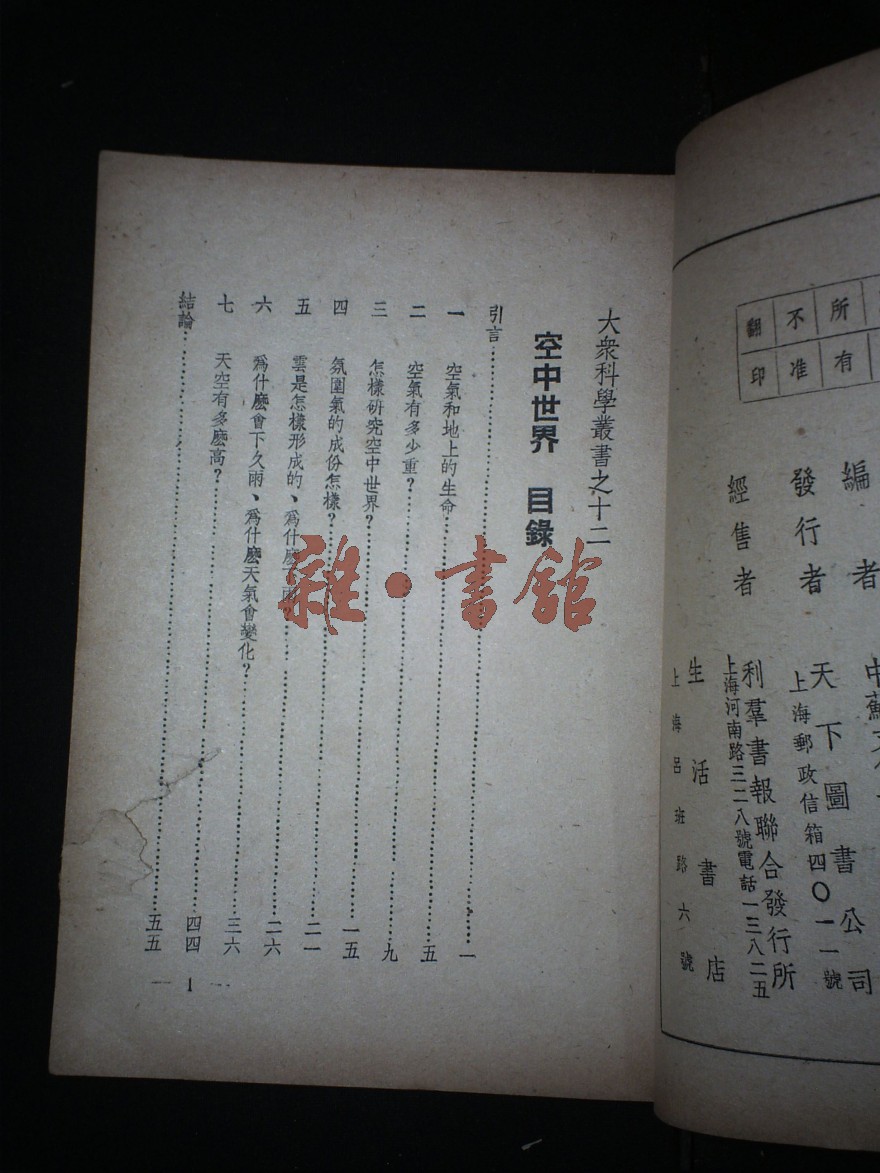 所有
不准
翻印
編者 中蘇
發行者 天下圖書公司
上海郵政信箱四〇一一號
經售者 利羣書報聯合發行所
上海河南路三二八號電話一三八二五
生活書店
上海呂班路六號
大衆科學叢書之十二
空中世界 目錄
引言…一
一 空氣和地上的生命…五
二 空氣有多少重?…九
三 怎樣研究空中世界?…一五
四 氛圍氣的成份怎樣?…二一
五 雲是怎樣形成的、爲什麽下雨?…二六
六 爲什麽會下久雨、爲什麽天氣會變化?…三六
七 天空有多麽高?…四四
結論…五五
— 1 —
雜·書館